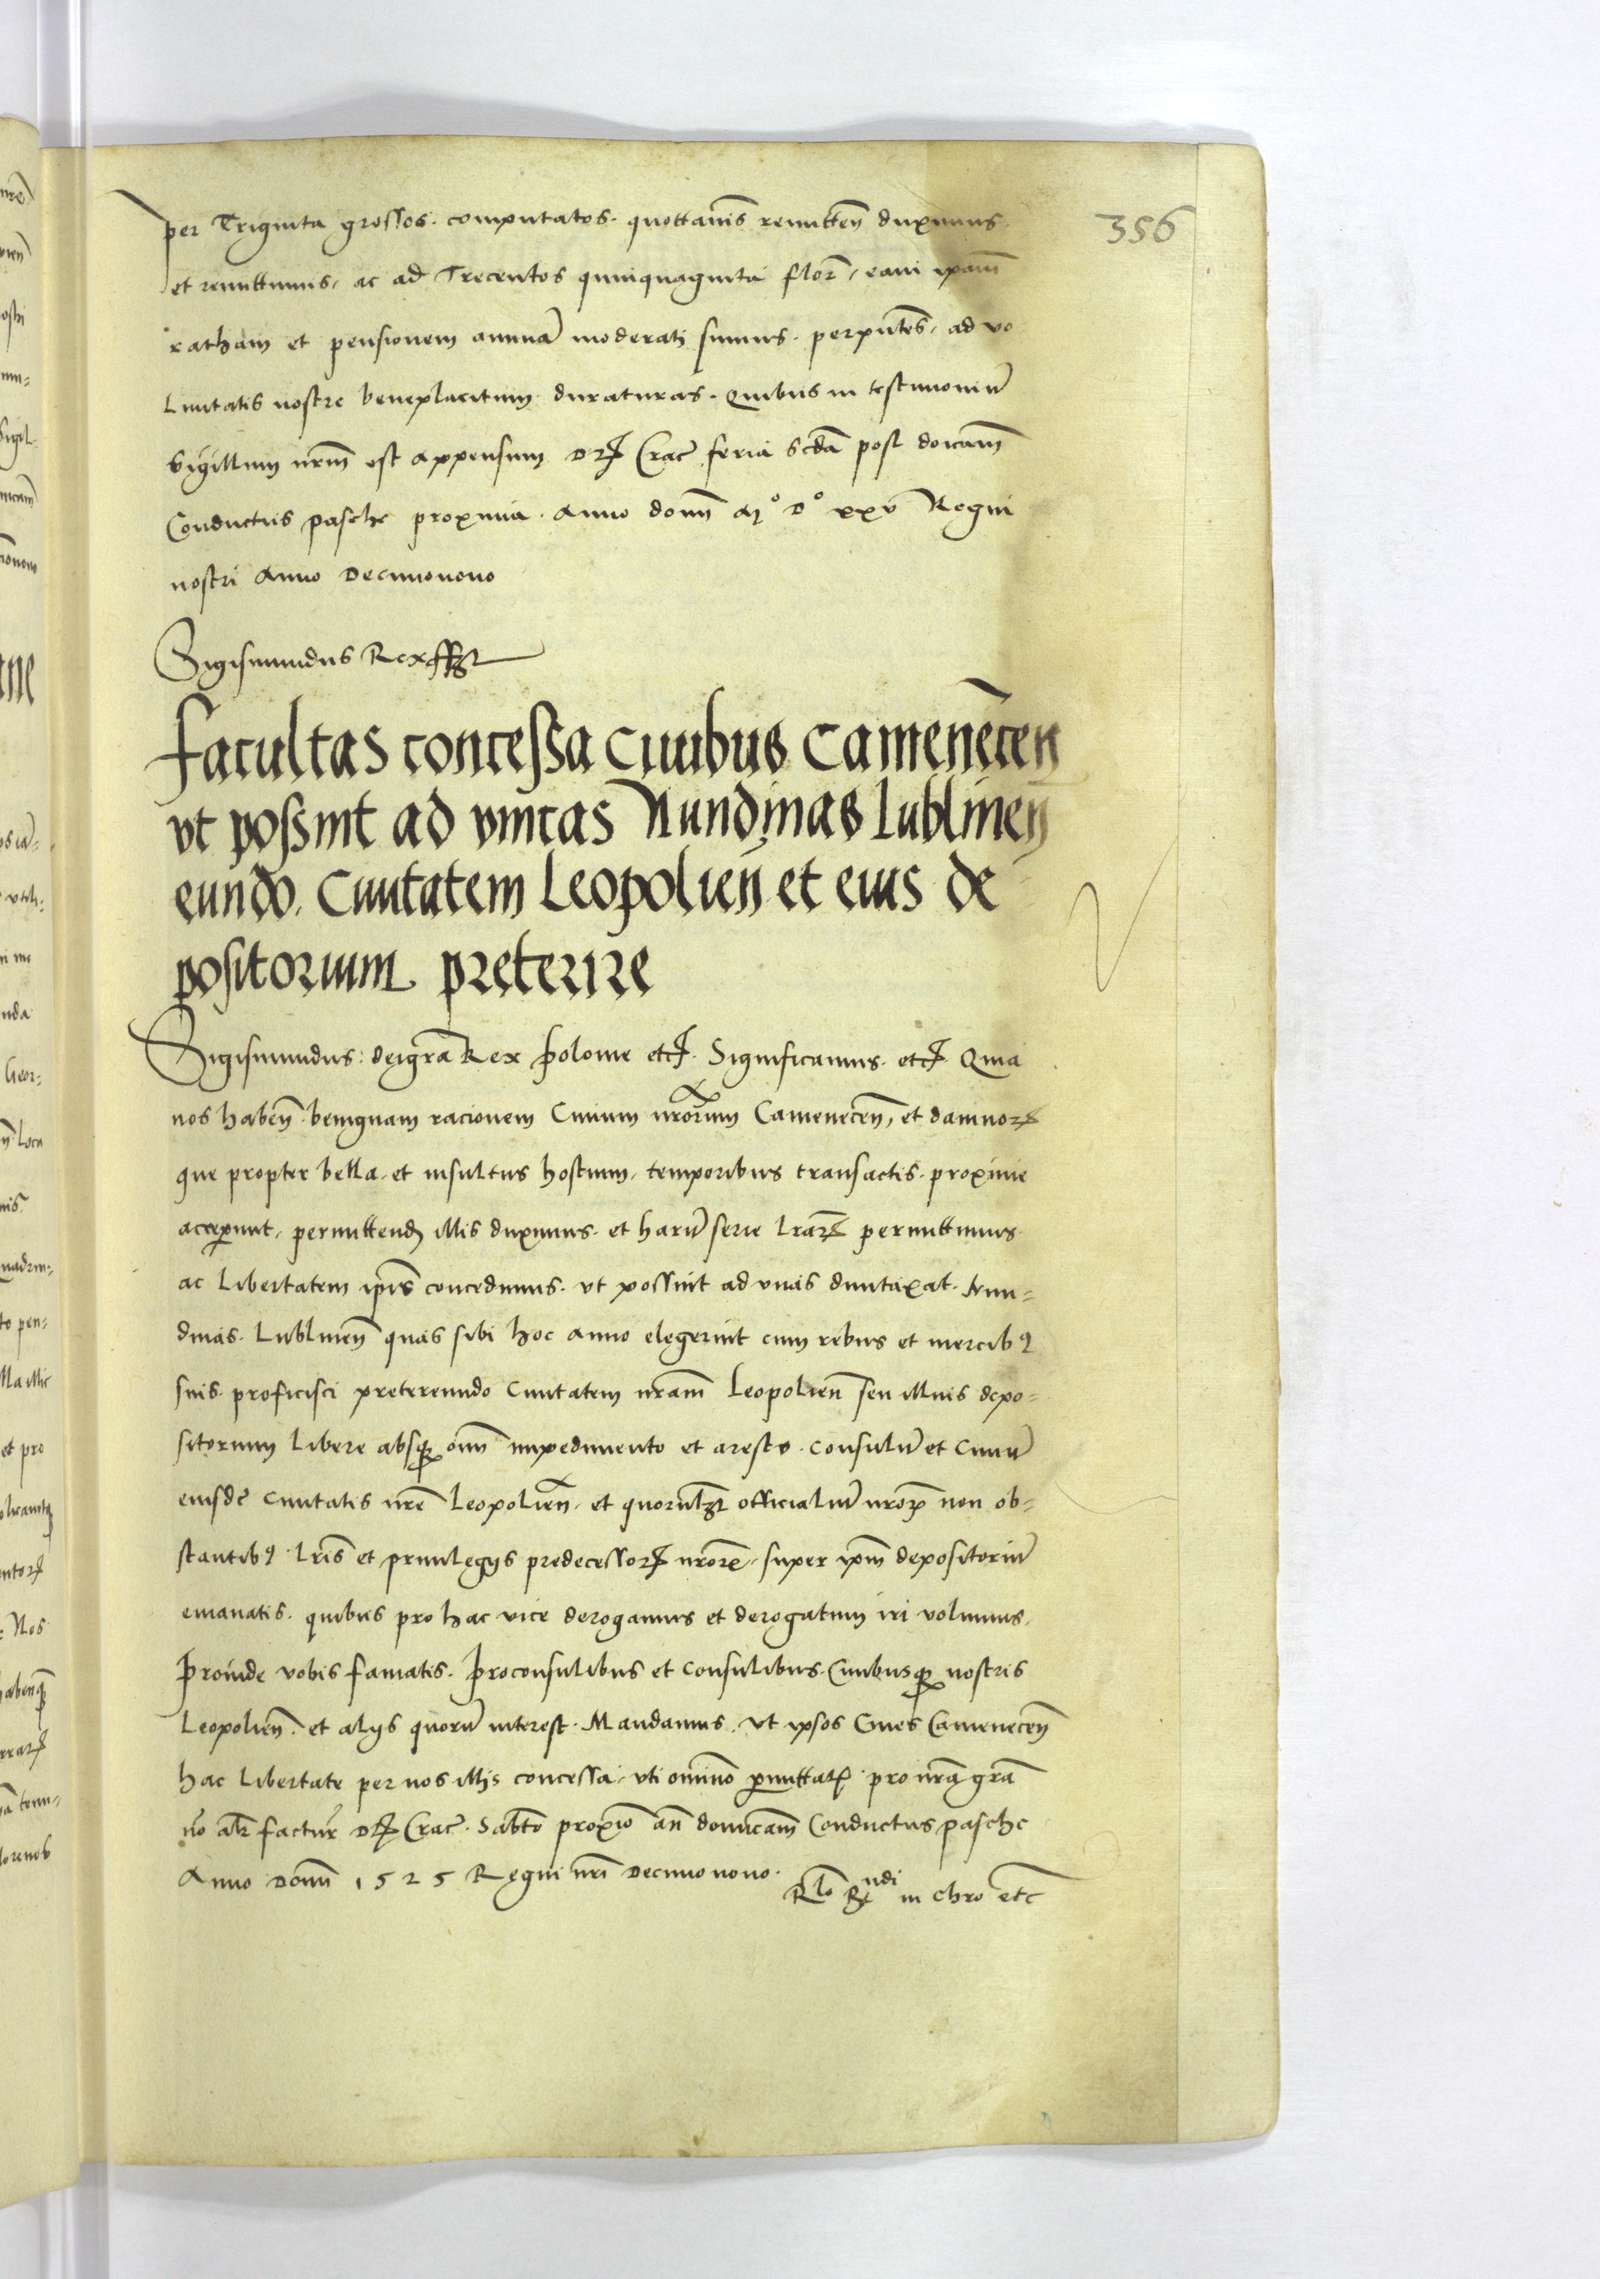 356
per Triginta grossos. computatos. quottannis remitten̄ duximus.
et remittimus, ac ad Trecentos quinquaginta flor̄, eam ip̄am
ratham et pensionem annuā moderati sumus. per p̄ntes, ad vo
luntatis nostre beneplacitum duraturas. Quibus in testimoniū
Sigillum nr̄m est appensum Dat̄ Crac̄ feria sc̄da post dn̄icam
Conductus pasche proxima. Anno domī Mº Dº xxv Regni
nostri Anno Decimonono
Sigismundus Rex sszt
Facultas concessa Civibus Camenēcen
vt possint ad vnicas Nundinas lublinen̄
eundo. Civitatem Leopolien̄ et eius de
positorium preterire
Sigismundus: dei gr̄a Rex Polonie etc̄. Significamus. etc̄ Quia
nos haben̄ benignam racionem Civium nr̄orum Camenecen̄, et damnoꝝ
que propter bella. et insultus hostium, temporibus transactis. proxime
acceperunt, permittend illis duximus. et harū serie lr̄aꝝ permittimus.
ac libertatem ip̄is concedimus. vt possint ad vnas duntaxat. Nun=
dinas. Lublinen̄ quas sibi hoc anno elegerint cum rebus et mercibꝰ
suis. proficisci pretereundo Civitatem nr̄am Leopolien̄ seu illius depo=
sitorium libere absqꝫ om̄i impedimento et aresto. consulū et Civiū
eiusdē Civitatis nr̄e Leopolien̄. et quorūlꝫt officialiū nr̄oꝝ non ob=
stantibꝰ lr̄is et privilegijs predecessoꝝ nr̄orū. super ip̄m depositoriū
emanatis. quibus pro hac vice derogamus et derogatum iri volumus.
Proinde vobis famatis. Proconsulibus et Consulibus. Civibusqꝫ nostris
Leopolien̄. et alijs quorū interest. Mandamus. vt ipsos Cives Camenecen̄
hac libertate per nos illis concessa, vti om̄ino permittatis. pro nr̄a gr̄a
nō alr̄ factur̄ Dat̄ Crac̄. Sabbō proxīo an̄ dominicam̄ Conductus pasche
Anno Domī 1525 Regni nr̄i Decimonono.
Rlō Rndi in chrō etc̄